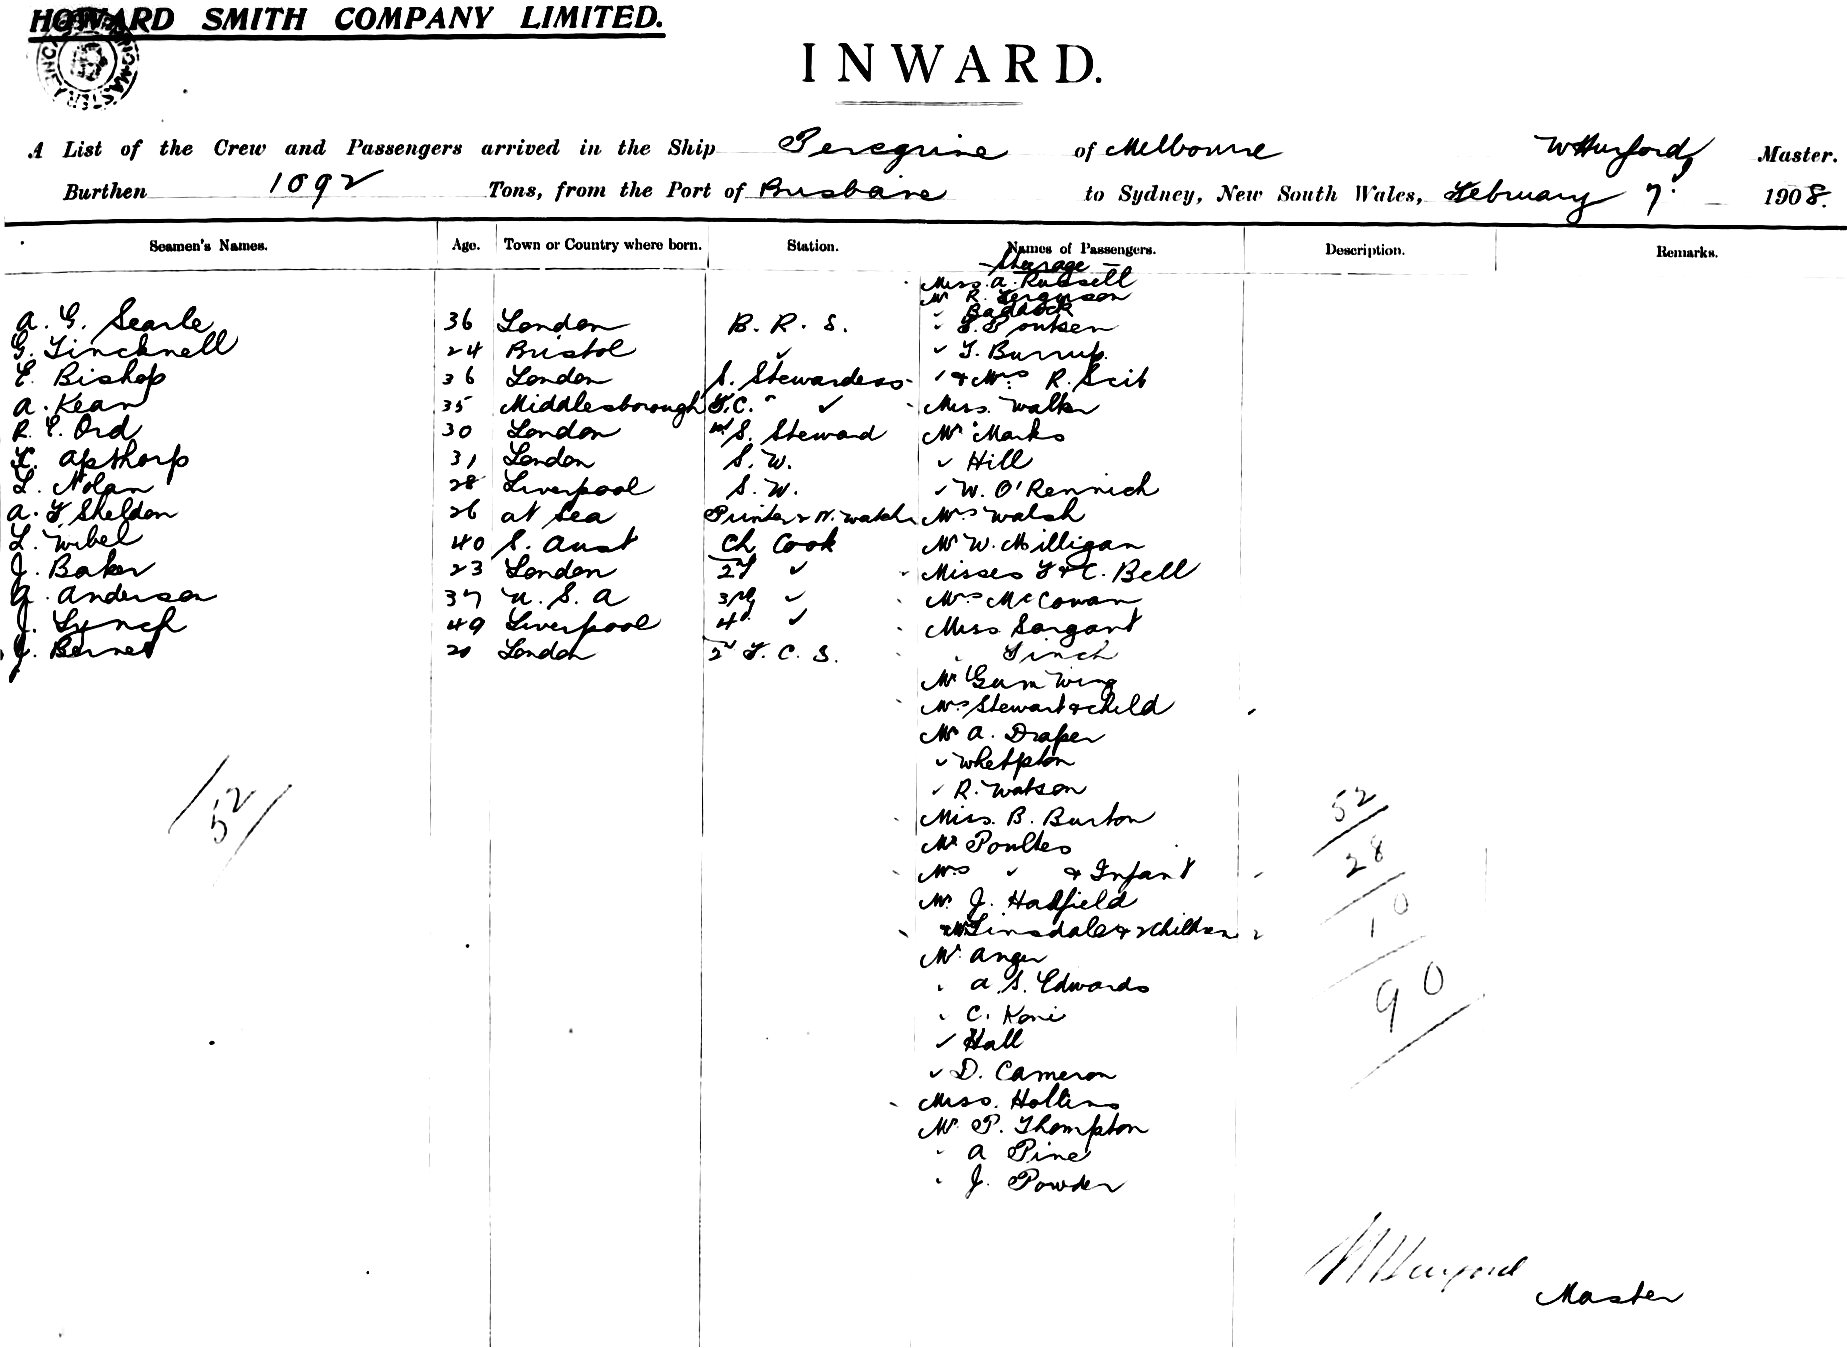 HOWARD SMITH COMPANY LIMITED.
INWARD.
A List of the Crew and Passengers arrived in the Ship Peregrine of Melbourne WHurford, Master.
Burthen 1092 Tons, from the Port of Brisbane to Sydney, New South Wales, February 7. 1908.
Seamen's Names. Age. Town or Country where born. Station. Names of Passengers. Description. Remarks.
- Steerage -
Miss A. Russell
Mr R. Ferguson
✓ Baddock
A. G. Searle 36 London B. R. S. ✓ E. Poulsen
G. Tincknell 24 Bristol ✓ ✓ T. Burrup.
E. Bishop 36 London S. Stewardess ✓ & Mrs R. Scit
A. Kean 35 Middlesborough F.C. " ✓ Miss. Walker
R. E. Ord 30 London S. Steward Mr Marks
Apthorp 31 London S. W. ✓ Hill
L. Nolan 28 Liverpool S. W. ✓ W. O'Rennich
A. F Sheldon 26 at Sea N. Watch Mrs Walsh
L. Wibel 40 S. Aust Ch Cook Mr W. Milligan
J. Baker 23 London 2nd ✓ Misses F & C. Bell
A. Anderson 37 U. S. A 3rd ✓ Mrs McCowan
J. Lynch 49 Liverpool 4th ✓ Miss Sargant
J. Bernet 20 London 2nd F. C. S. " Finch
Mr Gum Wing
Mrs Stewart & child
Mr A. Draper
✓ Whetpton
✓ R. Watson
52 52
Miss. B. Burton
Mr Poultes
28
Mrs ✓ & Infant
Mr J. Hadfield
10
Linsdale & 2 children 2
Mr Anger
" A. S. Edwards
90
" C. Koni
✓ Hall
✓ D. Cameron
Miss. Hollins
Mr P. Thompton
" A Pine
" J. Powder
WHurford
Master